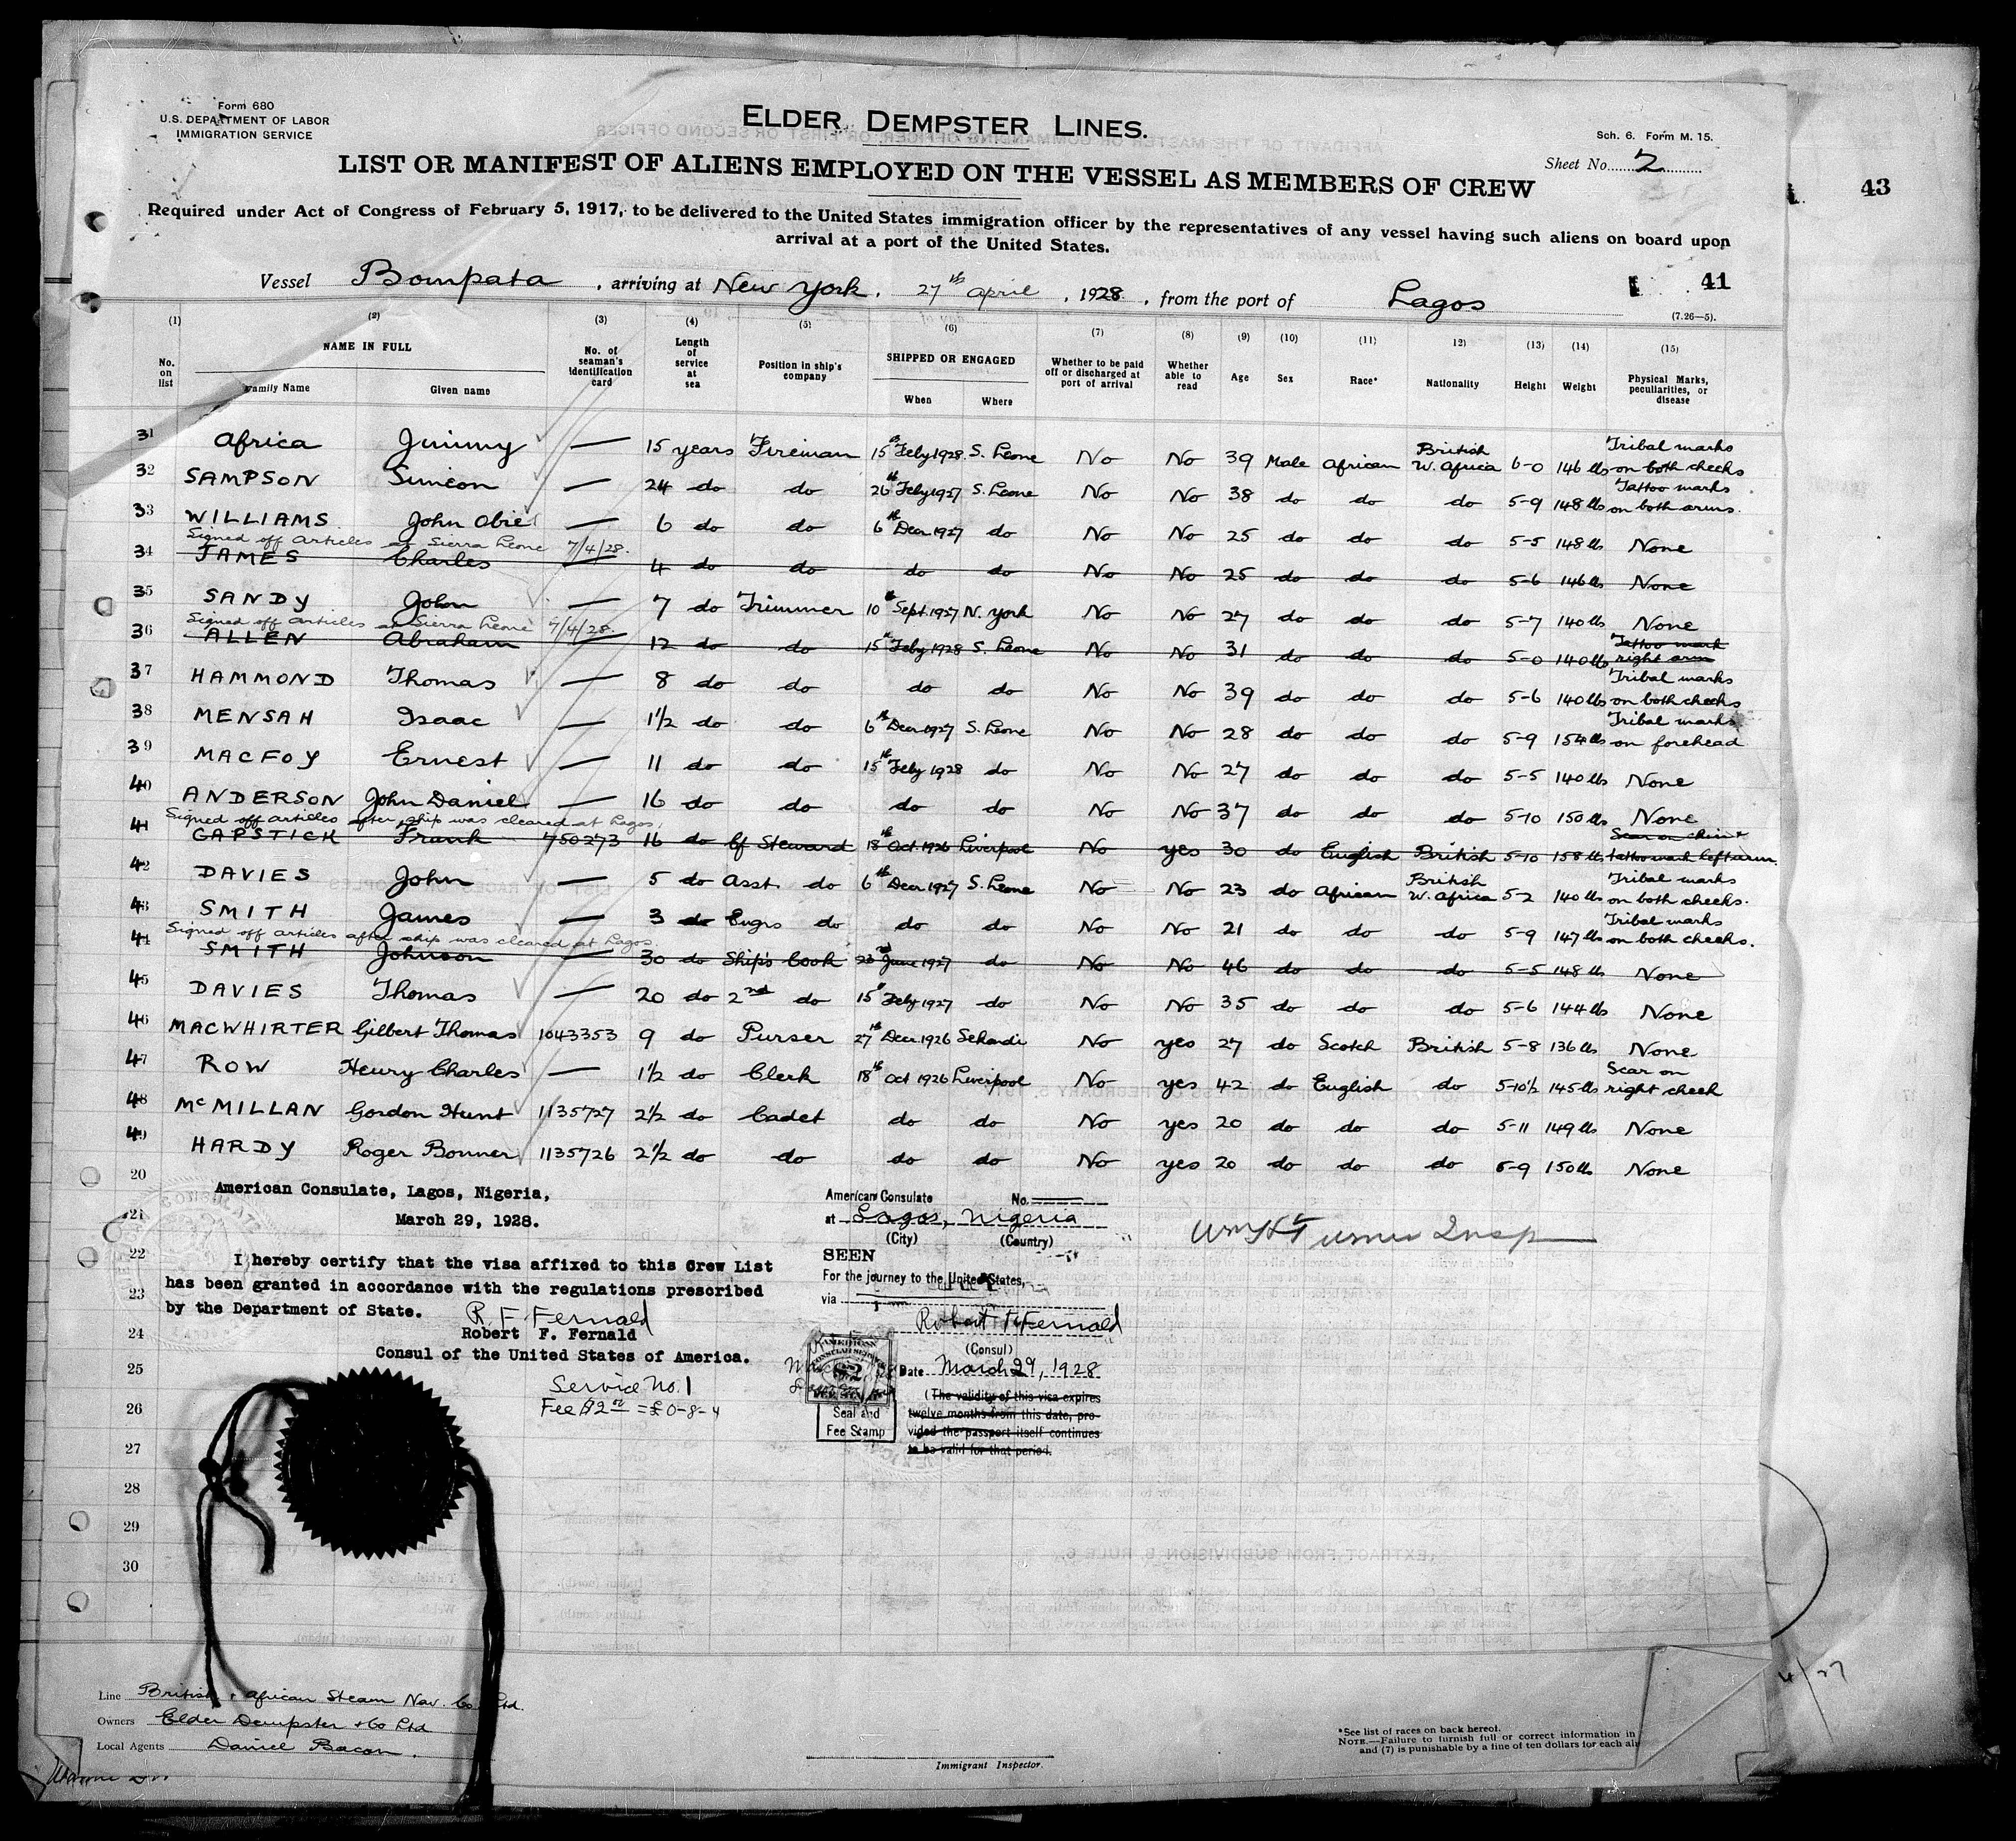 Form 680
U.S. DEPARTMENT OF LABOR
IMMIGRATION SERVICE
ELDER DEMPSTER LINES.
Sch. 6. Form M. 15.
LIST OR MANIFEST OF ALIENS EMPLOYED ON THE VESSEL AS MEMBERS OF CREW
Sheet No. 2
43
Required under Act of Congress of February 5, 1917, to be delivered to the United States immigration officer by the representatives of any vessel having such aliens on board upon
arrival at a port of the United States.
41
Vessel Bompata, arriving at New York, 27th April, 1928, from the port of Lagos
(7.26—5).
(1) (2) (3) (4) (5) (6) (7) (8) (9) (10) (11) 12) (13) (14) (15)
No. on list NAME IN FULL Family Name Given name No. of seaman's identification card Length of service at sea Position in ship's company SHIPPED OR ENGAGED When Where Whether to be paid off or discharged at port of arrival Whether able to read Age Sex Race* Nationality Height Weight Physical Marks, peculiarities, or disease
31 Africa Jimmy — 15 years Fireman 15th Feby 1928 S. Leone No No 39 Male African British W. Africa 6-0 146 lbs Tribal marks on both cheeks
32 SAMPSON Simeon — 24 do do 26th Feby 1927 S. Leone No No 38 do do do 5-9 148 lbs Tattoo marks on both arms.
33 WILLIAMS John Obie — 6 do do 6th Decr 1927 do No No 25 do do do 5-5 148 lbs None
Signed off Articles at Sierra Leone 7/4/28.
34 JAMES Charles — 4 do do do do No No 25 do do do 5-6 146 lbs None
35 SANDY John — 7 do Trimmer 10th Sept. 1927 N. York No No 27 do do do 5-7 140 lbs None
Signed off Articles at Sierra Leone 7/4/28.
36 ALLEN Abraham — 12 do do 15th Feby 1928 S. Leone No No 31 do do do 5-0 140 lbs Tattoo mark right arm
37 HAMMOND Thomas — 8 do do do do No No 39 do do do 5-6 140 lbs Tribal marks on both cheeks
38 MENSAH Isaac — 1½ do do 6th Decr 1927 S. Leone No No 28 do do do 5-9 154 lbs Tribal marks on forehead
39 MACFOY Ernest — 11 do do 15th Feby 1928 do No No 27 do do do 5-5 140 lbs None
40 ANDERSON John Daniel — 16 do do do do No No 37 do do do 5-10 150 lbs None
Signed off articles after ship was cleared at Lagos.
41 GAPSTICK Frank 750273 16 do Cf Steward 18th Oct. 1926 Liverpool No yes 30 do English British 5-10 158 lbs Scar on chin + tattoo mark left arm.
42 DAVIES John — 5 do Asst. do 6th Decr 1927 S. Leone No No 23 do African British W. Africa 5-2 140 lbs Tribal marks on both cheeks.
43 SMITH James — 3 do Engrs do do do No No 21 do do do 5-9 147 lbs Tribal marks on both cheeks.
Signed off articles after ship was cleared at Lagos.
44 SMITH Johnson — 30 do Ship's Cook 23rd June 1927 do No No 46 do do do 5-5 148 lbs None
45 DAVIES Thomas — 20 do 2nd do 15th Feby 1927 do No No 35 do do do 5-6 144 lbs None
46 MACWHIRTER Gilbert Thomas 1043353 9 do Purser 27th Decr 1926 Sekondi No yes 27 do Scotch British 5-8 136 lbs None
47 ROW Henry Charles — 1½ do Clerk 18th Oct 1926 Liverpool No yes 42 do English do 5-10½ 145 lbs Scar on right cheek
48 McMILLAN Gordon Hunt 1135727 2½ do Cadet do do No yes 20 do do do 5-11 149 lbs None
49 HARDY Roger Bonner 1135726 2½ do do do do No yes 20 do do do 5-9 150 lbs None
20
American Consulate, Lagos, Nigeria,
21
March 29, 1928.
22
I hereby certify that the visa affixed to this Crew List
has been granted in accordance with the regulations prescribed
23
by the Department of State.
R. F. Fernald
24
Robert F. Fernald
Consul of the United States of America.
25
Service No. 1
26
Fee $2 00 = £0-8-4
27
28
29
30
American Consulate No.
at Lagos, Nigeria
(City) (Country)
SEEN
For the journey to the United States,
via
Robert F Fernald
(Consul)
Date March 29, 1928
(The validity of this visa expires
twelve months from this date, pro-
vided the passport itself continues
to be valid for that period.
AMERICAN
CONSULAR SERVICE
$2
Seal and
Fee Stamp
Turner Insp
4/27
Line British & African Steam Nav. Co Ltd.
Owners Elder Dempster & Co Ltd
Local Agents Daniel Bacon.
Immigrant Inspector.
*See list of races on back hereof.
NOTE.—Failure to furnish full or correct information in
and (7) is punishable by a fine of ten dollars for each ali